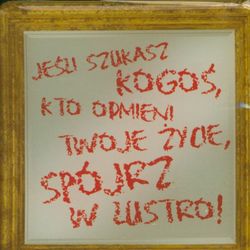 JEŚLI SZUKASZ
KOGOŚ,
KTO ODMIENI
TWOJE ŻYCIE,
SPÓJRZ
W LUSTRO!